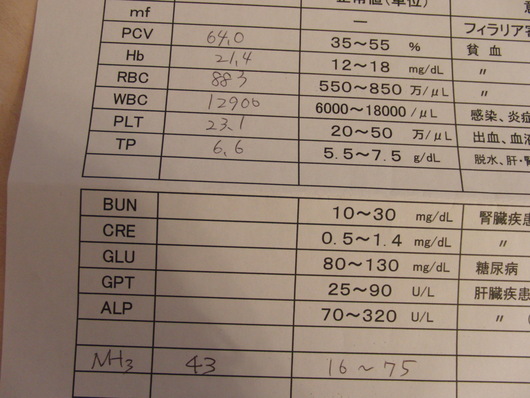 正常値(単位)
mf — フィラリア
PCV 64.0 35～55 % 貧血
Hb 21.4 12～18 mg/dL 〃
RBC 883 550～850 万/μL 〃
WBC 12900 6000～18000 /μL 感染、炎症
PLT 23.1 20～50 万/μL 出血、血液
TP 6.6 5.5～7.5 g/dL 脱水、肝・腎
BUN 10～30 mg/dL 腎臓疾患
CRE 0.5～1.4 mg/dL 〃
GLU 80～130 mg/dL 糖尿病
GPT 25～90 U/L 肝臓疾患
ALP 70～320 U/L 〃 (
NH3 43 16～75